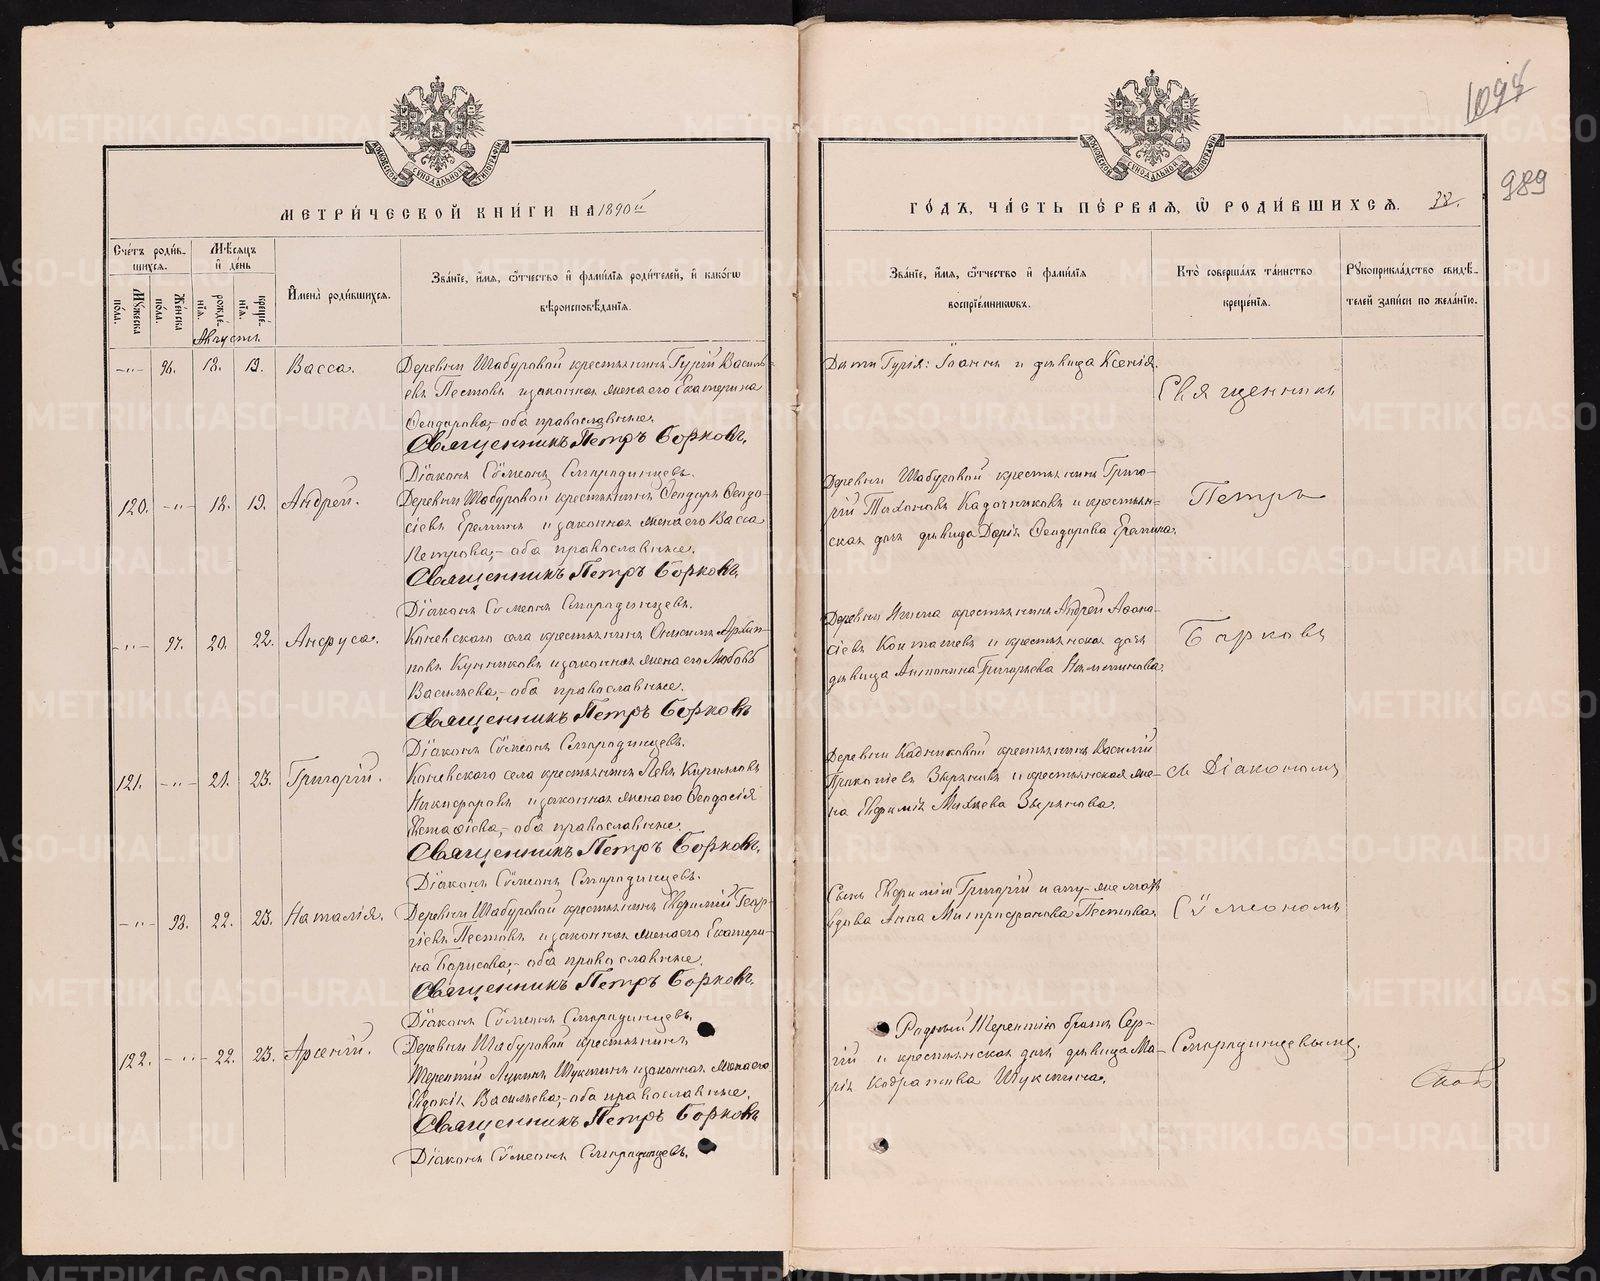 1094
989
МЕТРИ́ЧЕСКОЙ КНИ́ГИ НА 1890й
ГО́ДЪ, ЧА́СТЬ ПЕ́РВАЯ, Ѿ РОДИ́ВШИХСЯ. 38.
Сче́тъ роди́вшихся.
Му́жеска пола.
Же́нска пола.
Мѣ́сяцъ и де́нь
рожде́нїя.
креще́нїя.
Августъ
И҆мена̀ роди́вшихся.
Зва́нїе, и҆́мя, ѻ҆́тчество и҆ фами́лїя роди́телей, и҆ како́гѡ
вѣроисповѣ́данїя.
Зва́нїе, и҆́мя, ѻ҆́тчество и҆ фами́лїя
воспрїе́мниковъ.
Кто̀ соверша́лъ та́инство
креще́нїя.
Рꙋкоприкла́дство свидѣ́-
телей за́писи по жела́нїю.
—"— 96. 18. 19. Васса.
Деревни Шабуровой крестьянинъ Гурій Василь-
евъ Пестовъ и законная жена его Екатерина
Ѳеодорова,- оба православные.
Священникъ Петръ Борковъ.
Діаконъ Сѷмеонъ Смородинцевъ.
Дѣти Гурія: Іоаннъ и дѣвица Ксенія.
120. —"— 18. 19. Андрей.
Деревни Шабуровой крестьянинъ Ѳеодоръ Ѳеодо-
сіевъ Ереминъ и законная жена его Васса
Петрова,- оба православные.
Священникъ Петръ Борковъ.
Діаконъ Сѷмеонъ Смородинцевъ.
Деревни Шабуровой крестьянинъ Григо-
рій Тихоновъ Кадочниковъ и крестьян-
ская дочь дѣвица Дарія Ѳеодорова Еремина.
—"— 97. 20. 22. Анѳуса.
Коневскаго села крестьянинъ Онисимъ Архип-
повъ Кунниковъ и законная жена его Любовь
Васильева,- оба православные.
Священникъ Петръ Борковъ
Діаконъ Сѷмеонъ Смородинцевъ.
крестьянинъ Андрей Аѳона-
сіевъ и крестьянская дочь
дѣвица Антонина Григорьева
121. —"— 21. 23. Григорій.
Коневскаго села крестьянинъ Левъ Кирилловъ
Никифоровъ и законная жена его Ѳеодосія
Евстаѳіева,- оба православные.
Священникъ Петръ Борковъ.
Діаконъ Сѷмеонъ Смородинцевъ.
Деревни Кадниковой крестьянинъ Василій
Прокопіевъ Зыряновъ и крестьянская же-
на Евфимія Михеева Зырянова.
—"— 98. 22. 23. Наталія.
Деревни Шабуровой крестьянинъ Евфимій Геор-
гіевъ Пестовъ и законная жена его Екатери-
на Борисова,- оба православные.
Священникъ Петръ Борковъ.
Діаконъ Сѷмеонъ Смородинцевъ.
Сынъ Евфимія Григорій и
вдова Анна Митрофанова Пестова.
122. —"— 22. 23. Арсеній.
Деревни Шабуровой крестьянинъ
Терентій Лукинъ Шукшинъ и законная жена его
Евдокія Васильева,- оба православные.
Священникъ Петръ Борковъ
Діаконъ Сѷмеонъ Смородинцевъ.
Родный Терентію братъ Сер-
гій и крестьянская дочь дѣвица Ма-
рія Кодратова Шукшина.
Священникъ
Петръ
Борковъ
съ Діакономъ
Сѷмеономъ
Смородинцевымъ.